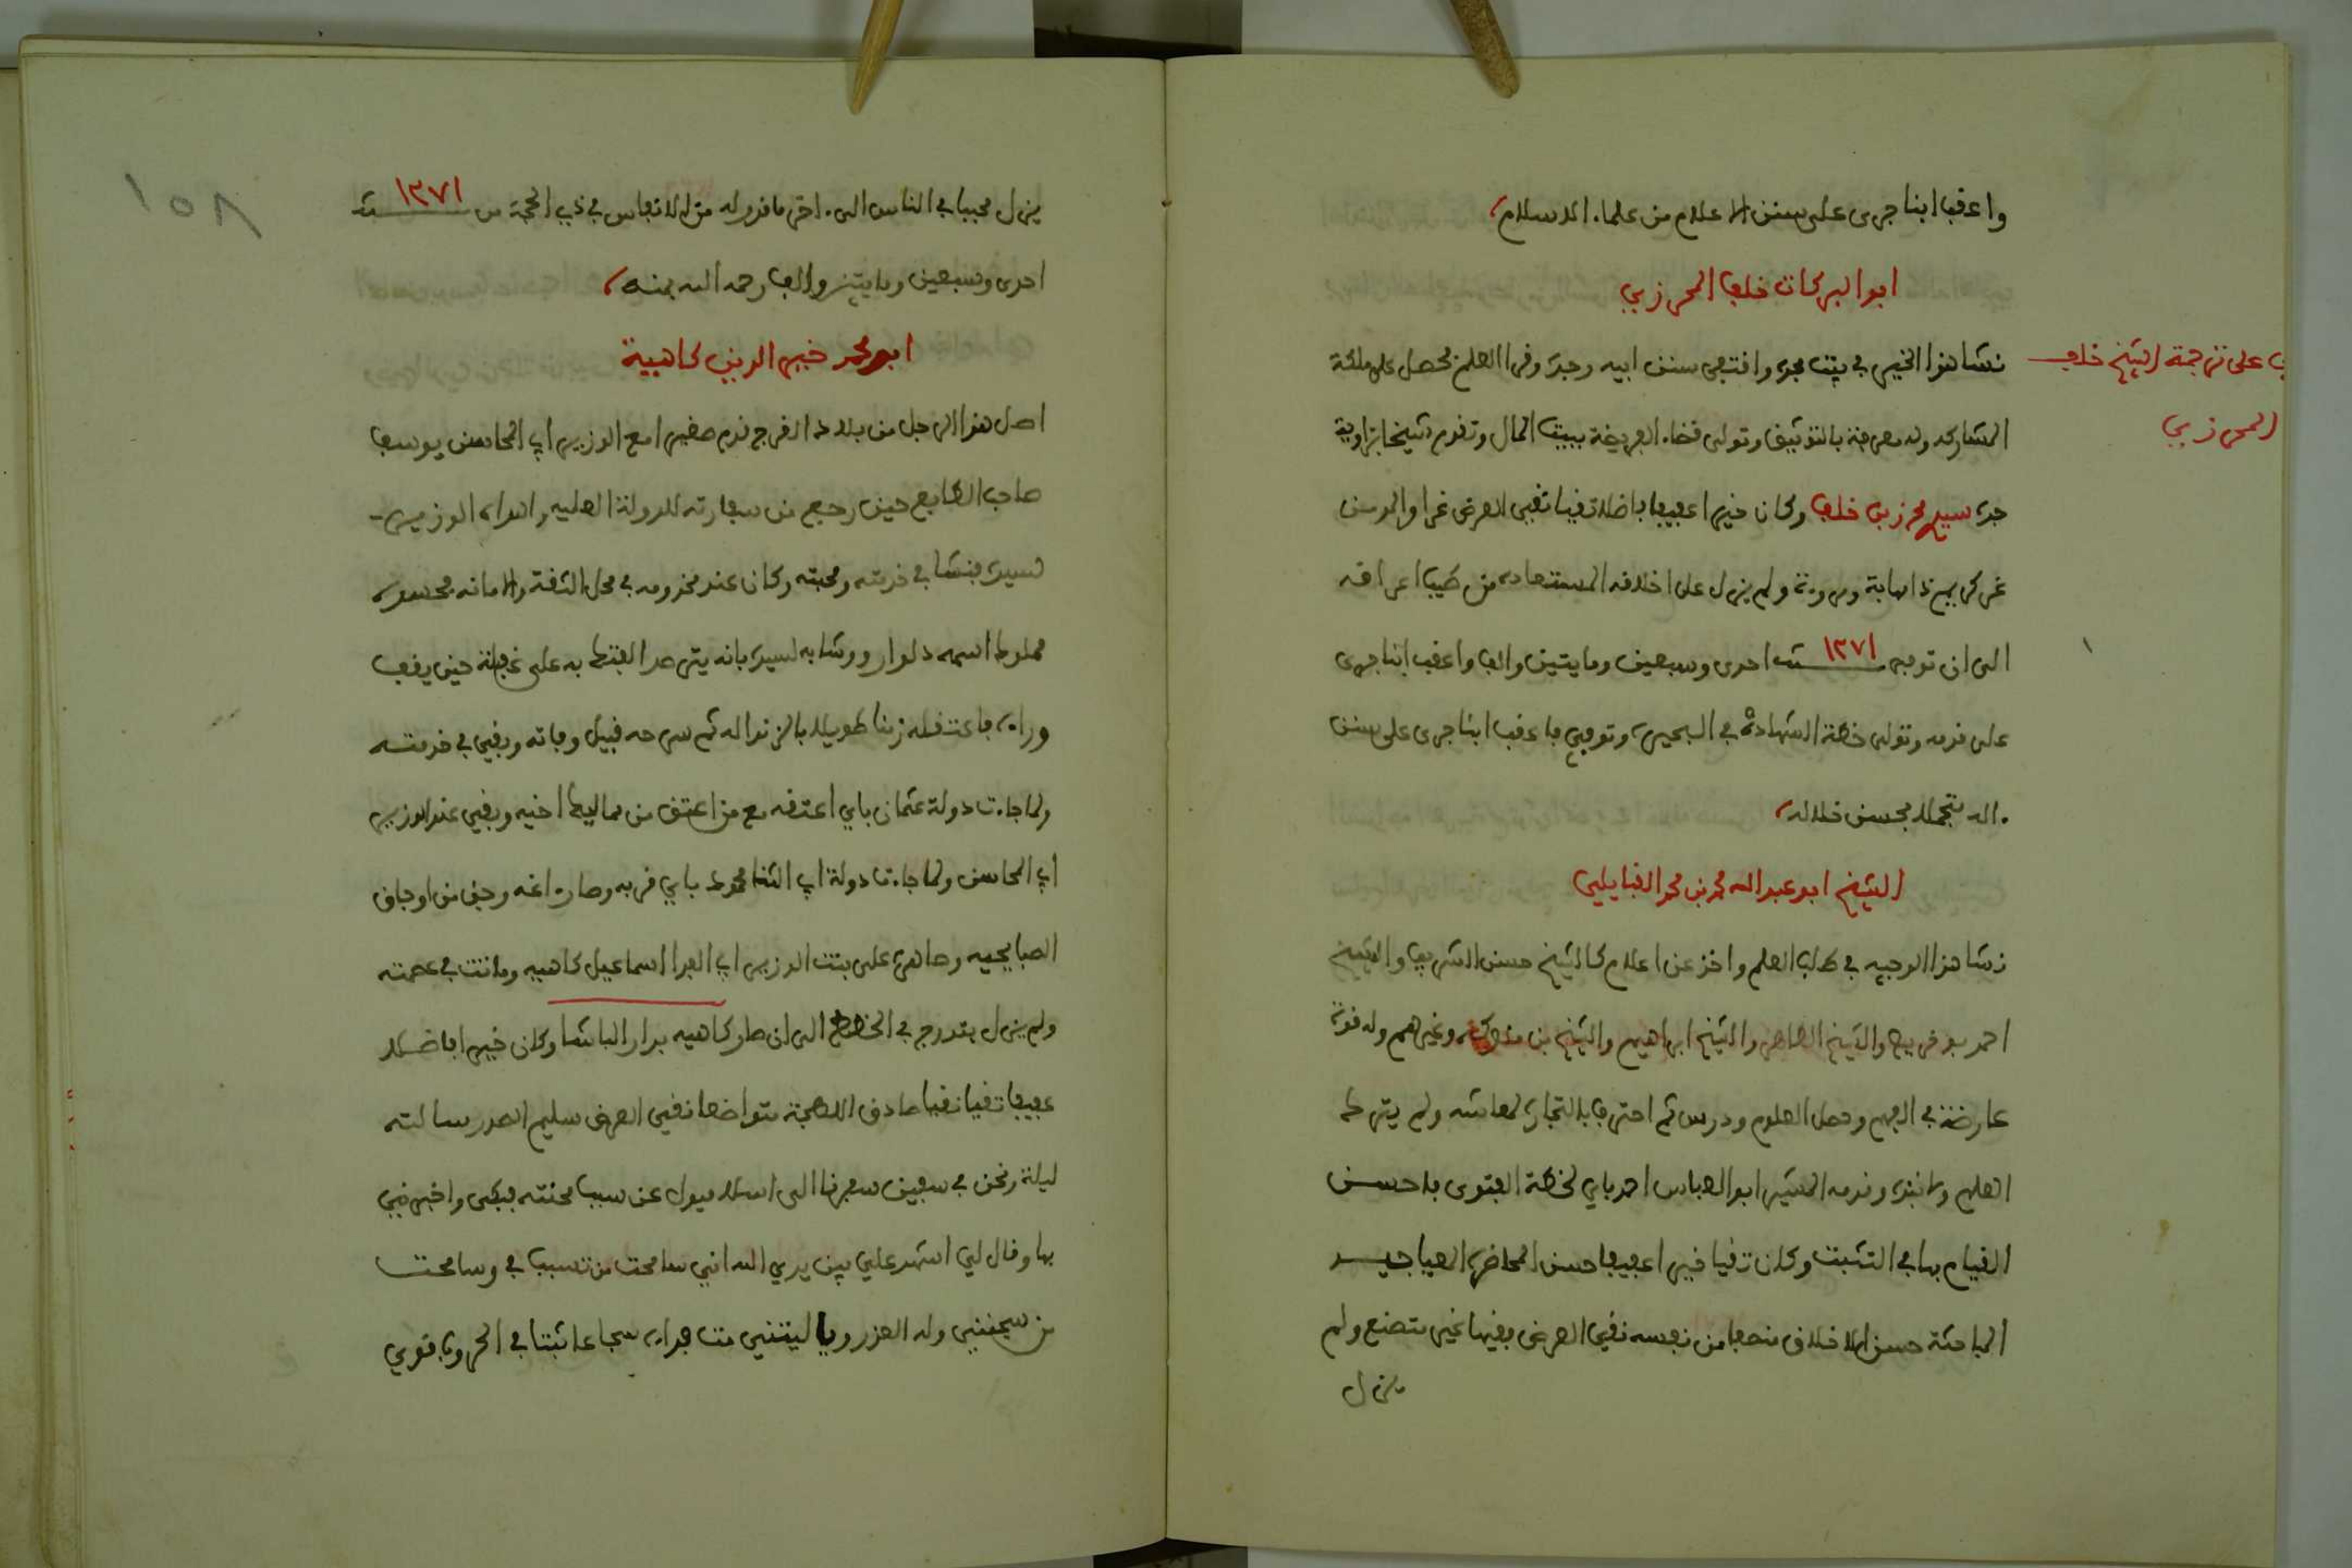 واعقب ابنا جرى على سنن الاعلام من علماء الاسلام
ابو البركات خلف المحرزي
نشا هذا الخير في بيت مجده واقتفى سنن ابيه وجده وقرا العلم فحصل على ملكة
المشاركه وله معرفة بالتوثيق وتولى قضاء الفريضة ببيت المال وتقدم شيخا بزاوية
جده سيدي محرز بن خلف وكان خيرا عفيفا فاضلا تقيا نقي العرض غرا والمومن
غر كريم ذا مهابة ومروءة ولم يزل على اخلاقه المستعاده من طيب اعراقه
الى ان توفي سنة ١٢٧١ احدى وسبعين ومايتين والف واعقب ابنا جرى
على قدمه وتولى خطة الشهادة في البحيرة وتوفي فاعقب ابنا جرى على سنن
اله متجملا بحسن خلاله
الشيخ ابو عبد الله محمد بن محمد القبايلي
نشا هذا الوجيه في طلب العلم واخذ عن اعلام كالشيخ حسن الشريف والشيخ
احمد بوخريص والشيخ الطاهر والشيخ ابراهيم والشيخ بن ملوكة وغيرهم وله قوة
عارضة في الفهم وحصل العلوم ودرس ثم احترف بالتجارة لمعاشه ولم يترك
العلم وقدمه المشير ابو العباس احمد باي لخطة الفتوى فاحسن
القيام بها في التثبت وكان تقيا خيرا عفيفا حسن المحاضرة
المباحثة حسن الاخلاق منصفا من نفسه نقي العرض فقيها غير متصنع ولم
يزل
على ترجمة الشيخ خلف
المحرزي
١٥٨
يزل محببا في الناس الى اخر ما قدر له من الانفاس في ذي الحجة من سنة ١٢٧١
احدى وسبعين ومايتين والف رحمه الله بمنه
ابو محمد خير الدين كاهية
اصل هذا الرجل من بلاد الفرج قدم صغيرا مع الوزير ابي المحاسن يوسف
صاحب الطابع حين رجع من سفارته للدولة العليه واهداه الوزير
لسيده فنشا في خدمته ومحبته وكان عند مخدومه في محل الثقة والامانه فحسده
مملوك اسمه دلوار ووشا به لسيده بانه يترصد الفتك به على غفلة حين يقف
وراءه فاعتقله زمنا طويلا بالزنداله ثم سرحه قبيل وفاته وبقي في خدمته
ولما جاءت دولة عثمان باي اعتقه مع من اعتق من مماليك اخيه وبقي عند الوزير
ابي المحاسن ولما جاءت دولة ابي الثنا محمود باي قربه وصار اغه وجق من اوجاق
الصبايحيه وصاهره على بنت الوزير ابي الفدا اسماعيل كاهيه وماتت في عصمته
ولم يزل يتدرج في الخطط الى ان صار كاهيه بدار الباشا وكان خيرا فاضلا
عفيفا تقيا نقيا صادق اللهجة متواضعا نقي العرض سليم الصدر سالته
ليلة ونحن في سفين سفرنا الى اسلامبول عن سبب محنته فبكى واخبرني
بها وقال لي اشهد علي بين يدي الله انني سامحت من تسبب في وسامحت
من سجنني وله العذر ويا ليتني مت فداءه شجاعا ثبتا في الحروب قوي